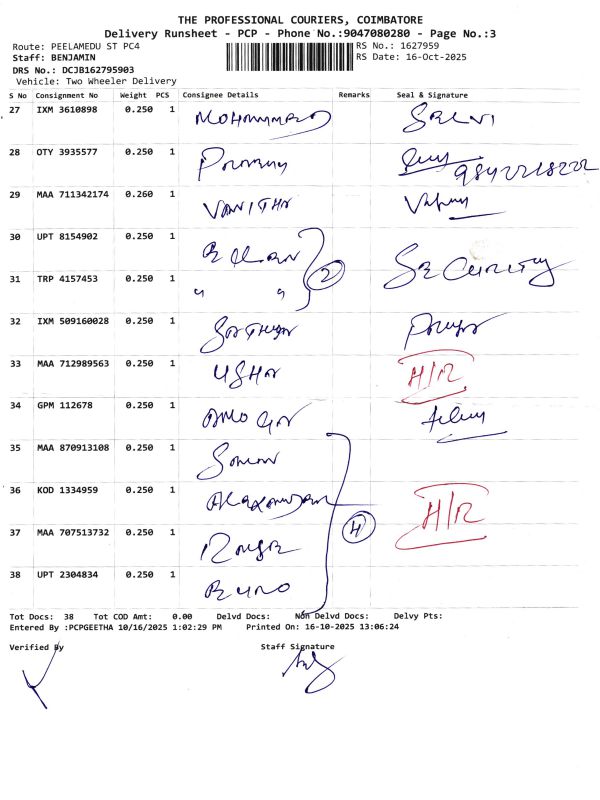 THE PROFESSIONAL COURIERS, COIMBATORE
Delivery Runsheet - PCP - Phone No.:9047080280 - Page No.:3
Route: PEELAMEDU ST PC4 RS No.: 1627959
Staff: BENJAMIN RS Date: 16-Oct-2025
DRS No.: DCJB162795903
Vehicle: Two Wheeler Delivery
S No Consignment No Weight PCS Consignee Details Remarks Seal & Signature
27 IXM 3610898 0.250 1 MOHAMMED SELVI
28 OTY 3935577 0.250 1
29 MAA 711342174 0.260 1 VANITHA
30 UPT 8154902 0.250 1
2 SECURITY
31 TRP 4157453 0.250 1 " "
32 IXM 509160028 0.250 1 SATHYA
33 MAA 712989563 0.250 1 USHA H/R
34 GPM 112678 0.250 1
35 MAA 870913108 0.250 1
36 KOD 1334959 0.250 1 H/R
4
37 MAA 707513732 0.250 1
38 UPT 2304834 0.250 1
Tot Docs: 38 Tot COD Amt: 0.00 Delvd Docs: Non Delvd Docs: Delvy Pts:
Entered By :PCPGEETHA 10/16/2025 1:02:29 PM Printed On: 16-10-2025 13:06:24
Verified By Staff Signature